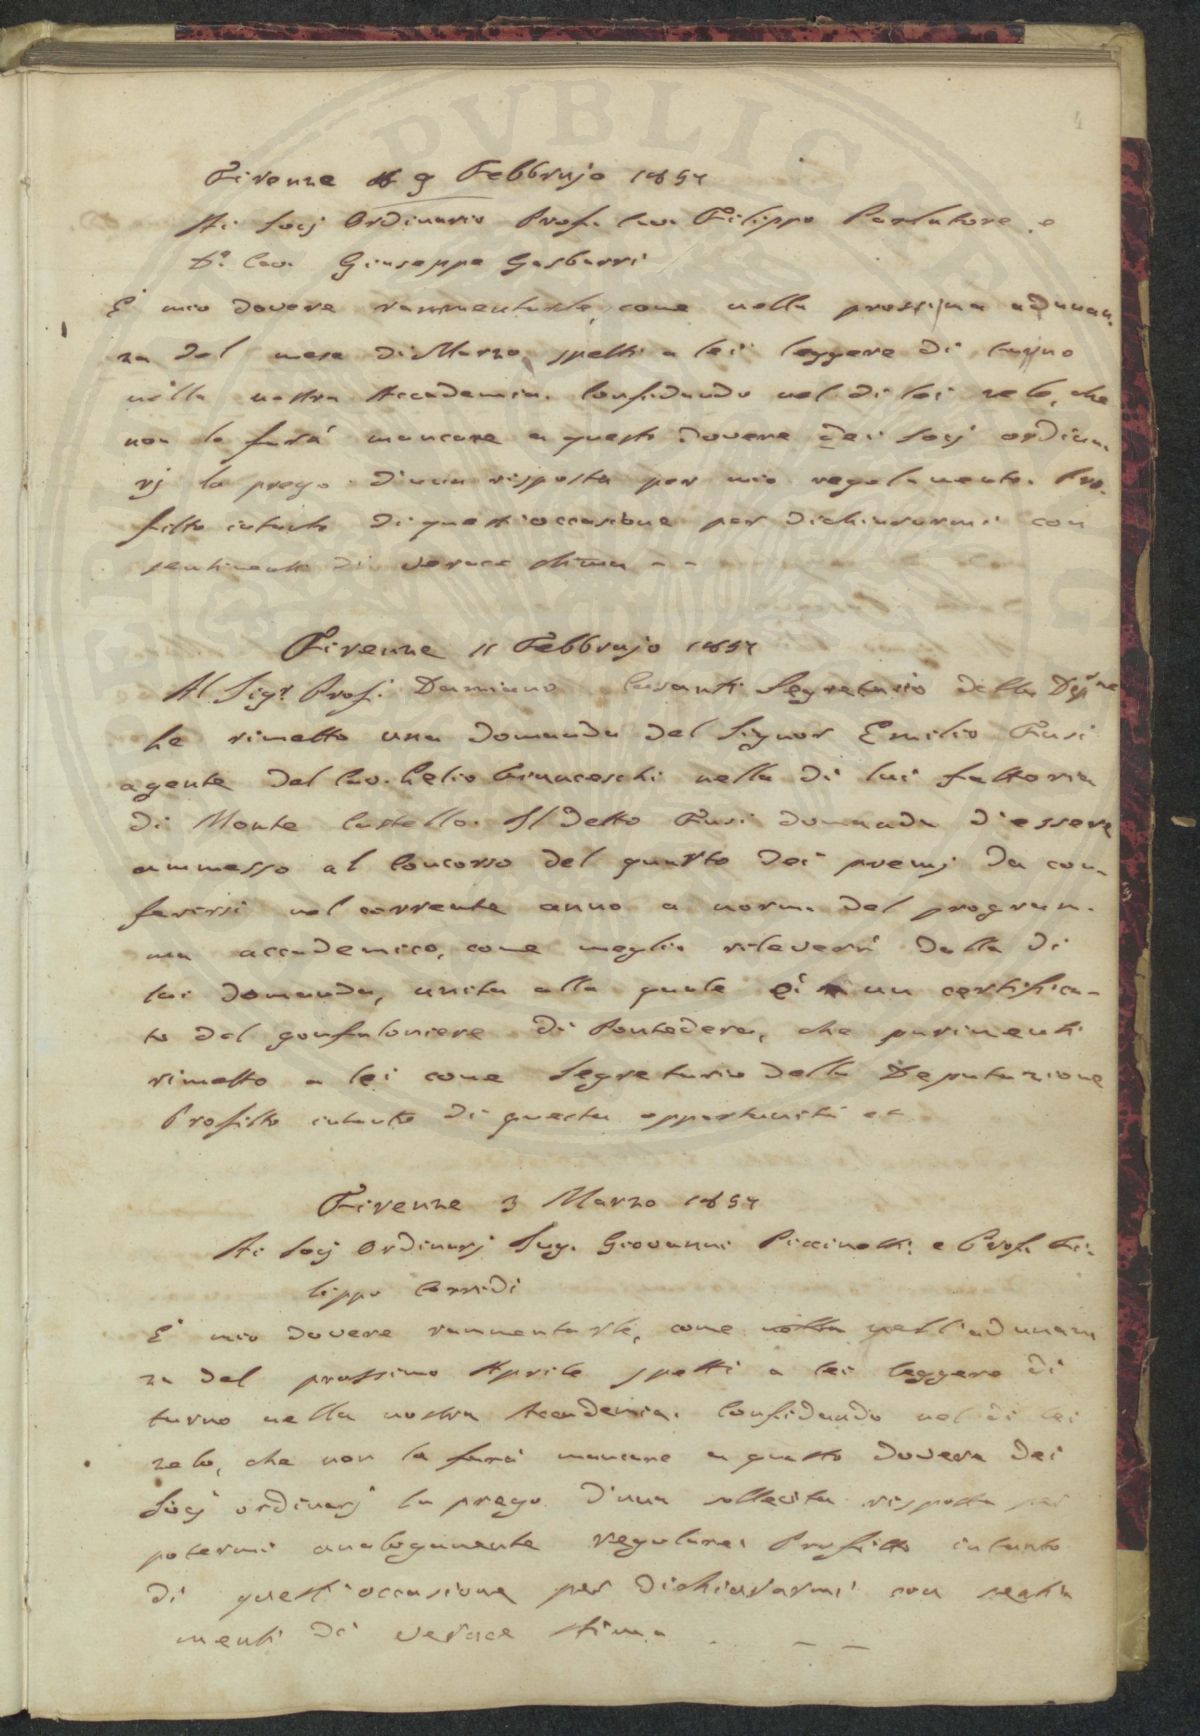 Firenze 9 Febbrajo 1857
Ai Socj Ordinario Prof. Cav. Filippo Parlatore e
Dr. Cav. Giuseppe Gasbarri
È mio dovere rammentarle, come nella prossima adunan-
za del mese di Marzo, spetti a lei leggere di turno
nella nostra Accademia. Confidando nel di lei zelo, che
non la farà mancare a questo dovere dei Socj ordina-
rj la prego d'una risposta per mio regolamento. Pro-
fitto intanto di quest'occasione per dichiararmi con
sentimenti di verace stima - -
Firenze 11 Febbrajo 1857
Al Sigr. Prof. Damiano Casanti Segretario della Depne
Le rimetto una domanda del Signor Emilio Fusi
agente del Cav. Lelio Franceschi nella di lui fattoria
di Monte Castello. Il detto Fusi domanda d'essere
ammesso al Concorso del quarto dei premj da con-
ferirsi nel corrente anno a norma del program-
ma accademico, come meglio rileverà dalla di
lui domanda, unita alla quale è un certifica-
to del gonfaloniere di Pontedera, che parimenti
rimetto a lei come Segretario della Deputazione
Profitto intanto di questa opportunità ec
Firenze 3 Marzo 1857
Ai Socj Ordinarj Ing. Giovanni Piccinetti e Prof. Fi-
lippo Corridi
È mio dovere rammentarle, come nella nell'adunan
za del prossimo Aprile spetti a lei leggere di
turno nella nostra Accademia. Confidando nel di lei
zelo, che non la farà mancare a questo dovere dei
Socj ordinarj la prego d'una sollecita risposta per
potermi analogamente regolare. Profitto intanto
di quest'occasione per dichiararmi con senti
menti di verace stima - -